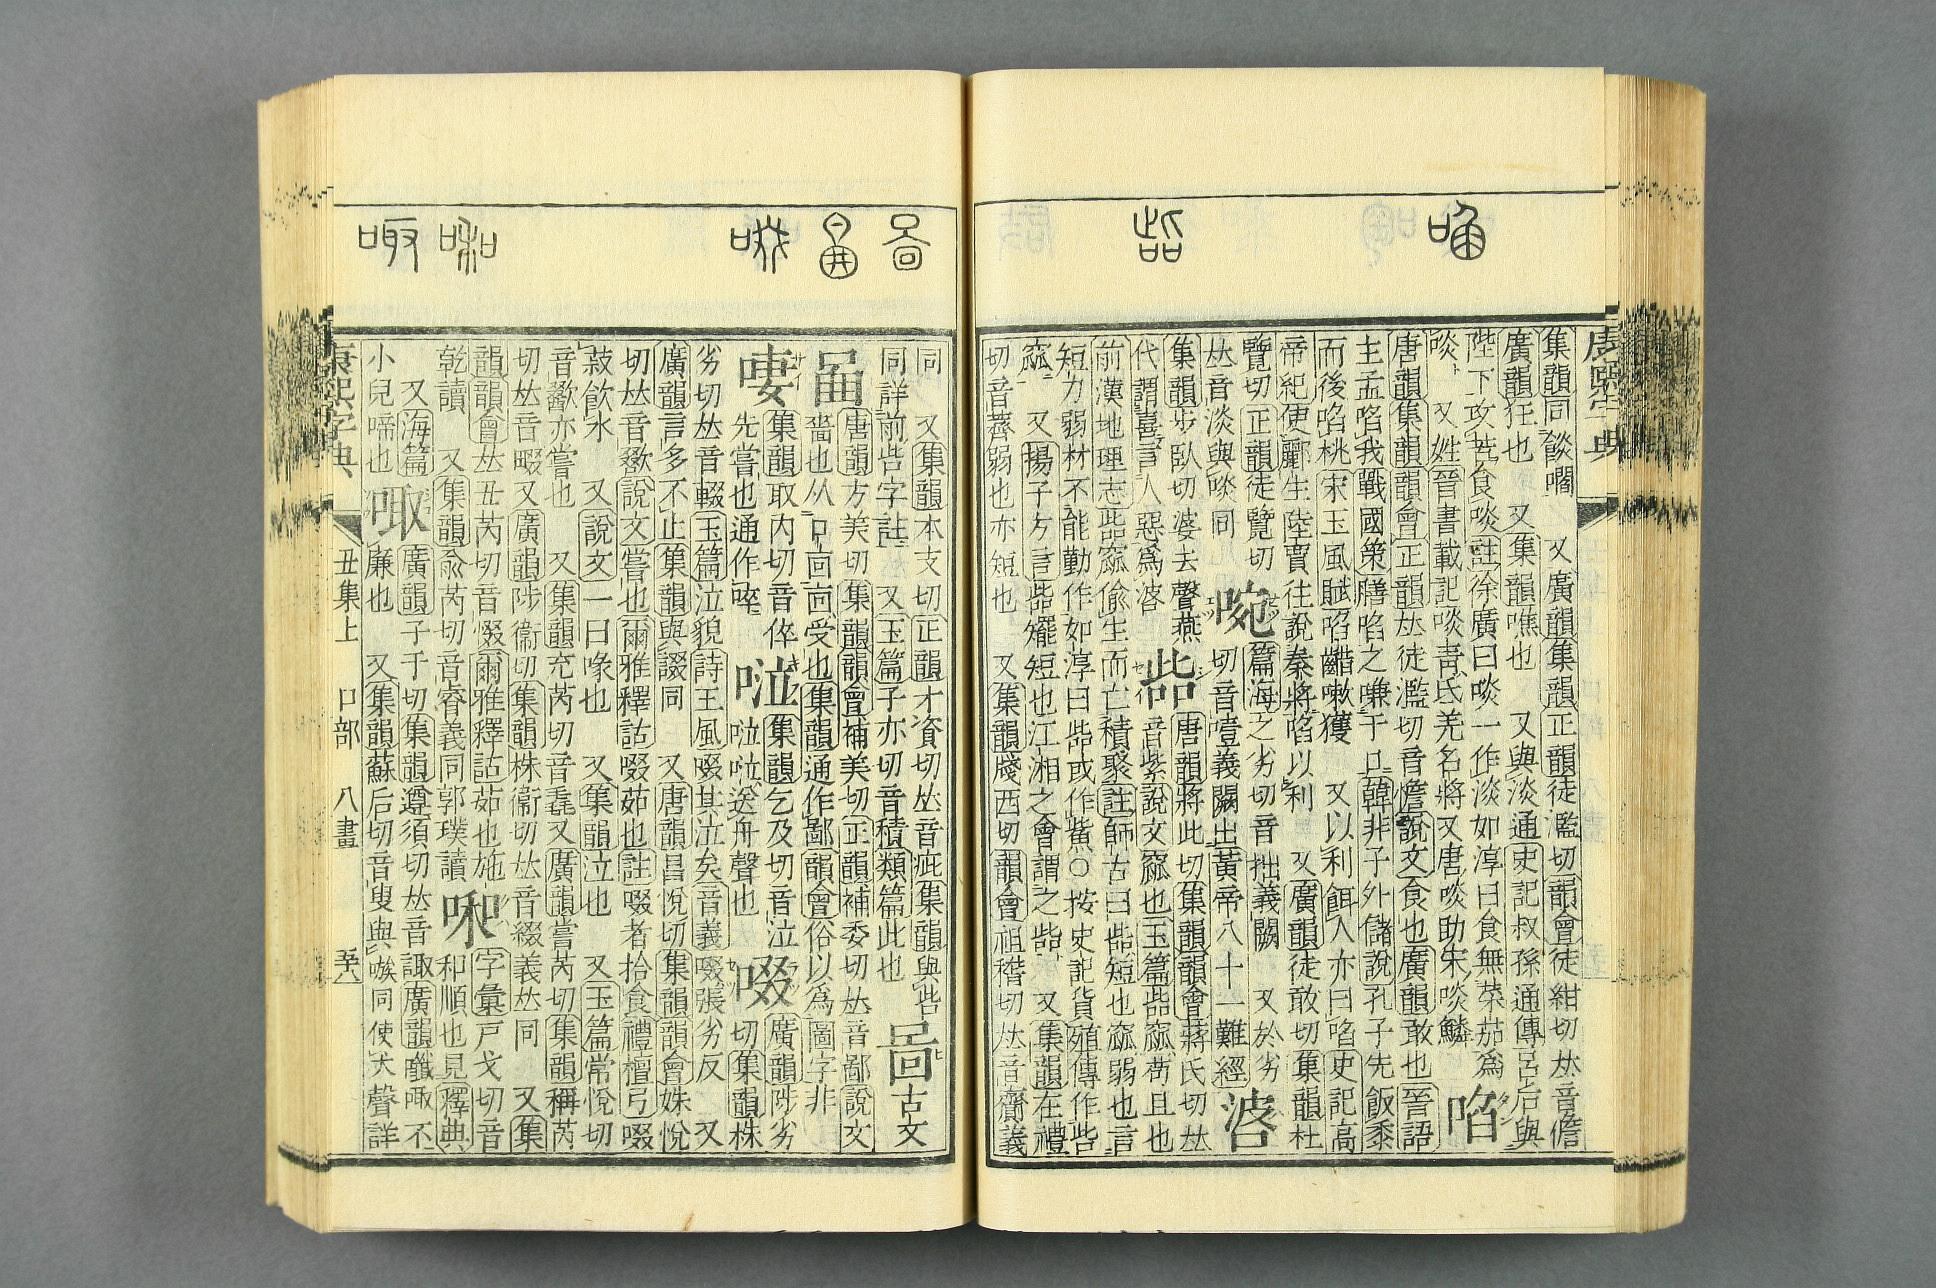 康熙字典
集韻同餤㘕　又廣韻集韻正韻徒濫切韻會徒紺切𠀤音憺
廣韻狂也　又集韻噍也　又與淡通史記叔孫通傳呂后與
陛下攻苦食啖註徐廣曰啖一作淡如淳曰食無菜茹爲
啖　又姓晉書載記啖靑氐羌名將又唐啖助宋啖鱗
啗
唐韻集韻韻會正韻𠀤徒濫切音憺說文食也廣韻啖也晉語
主孟啗我戰國策膳啗之嗛于口韓非子外儲說孔子先飯黍
而後啗桃宋玉風賦啗齰嗽獲　又以利餌人亦曰啗史記高
帝紀使酈生陸賈往說秦將啗以利　又廣韻徒敢切集韻杜
覽切正韻徒覽切
𠀤音淡與啖同
啘
篇海之劣切音拙義闕　又於劣
切音噎義闕出黃帝八十一難經
集韻步臥切婆去聲燕
代謂喜言人惡爲
啙
唐韻將此切集韻韻會蔣氏切𠀤
音紫說文窳也玉篇啙窳苟且也
前漢地理志啙窳偸生而亡積聚註師古曰啙短也窳弱也言
短力弱材不能勤作如淳曰啙或作鮆○按史記貨殖傳作呰
窳　又揚子方言啙矲短也江湘之會謂之啙　又集韻在禮
切音薺弱也亦短也　又集韻牋西切韻會祖稽切𠀤音齎義
同　又集韻本支切正韻才資切𠀤音疵集韻與呰
同詳前呰字註　又玉篇子亦切音積類篇此也
啚
古文
啚
唐韻方美切集韻韻會補美切正韻補委切𠀤音鄙說文
嗇也从口㐭㐭受也集韻通作鄙韻會俗以爲圖字非
啛
集韻取內切音倅
先嘗也通作啐
㕸
集韻乞及切音泣
㕸㕸送舟聲也
啜
廣韻陟劣
切集韻株
劣切𠀤音輟玉篇泣貌詩王風啜其泣矣音義啜張劣反　又
廣韻言多不止集韻與諁同　又唐韻昌悅切集韻韻會姝悅
切𠀤音歠說文嘗也爾雅釋詁啜茹也註啜者拾食禮檀弓啜
菽飮水　又說文一曰喙也　又集韻泣也　又玉篇常悅切
音歠亦嘗也　又集韻充芮切音毳又廣韻嘗芮切集韻稱芮
切𠀤音啜又廣韻陟衞切集韻株衞切𠀤音綴義𠀤同　又集
韻韻會𠀤丑芮切音惙爾雅釋詁茹也施
乾讀　又集韻兪芮切音睿義同郭璞讀
啝
字彙戸戈切音
和順也見釋典
又海篇
小兒啼也
啣
廣韻子于切集韻遵須切𠀤音諏廣韻䜟啣不
廉也　又集韻蘇后切音叟與嗾同使犬聲詳
康熙字典
丑集上　口部　八畫